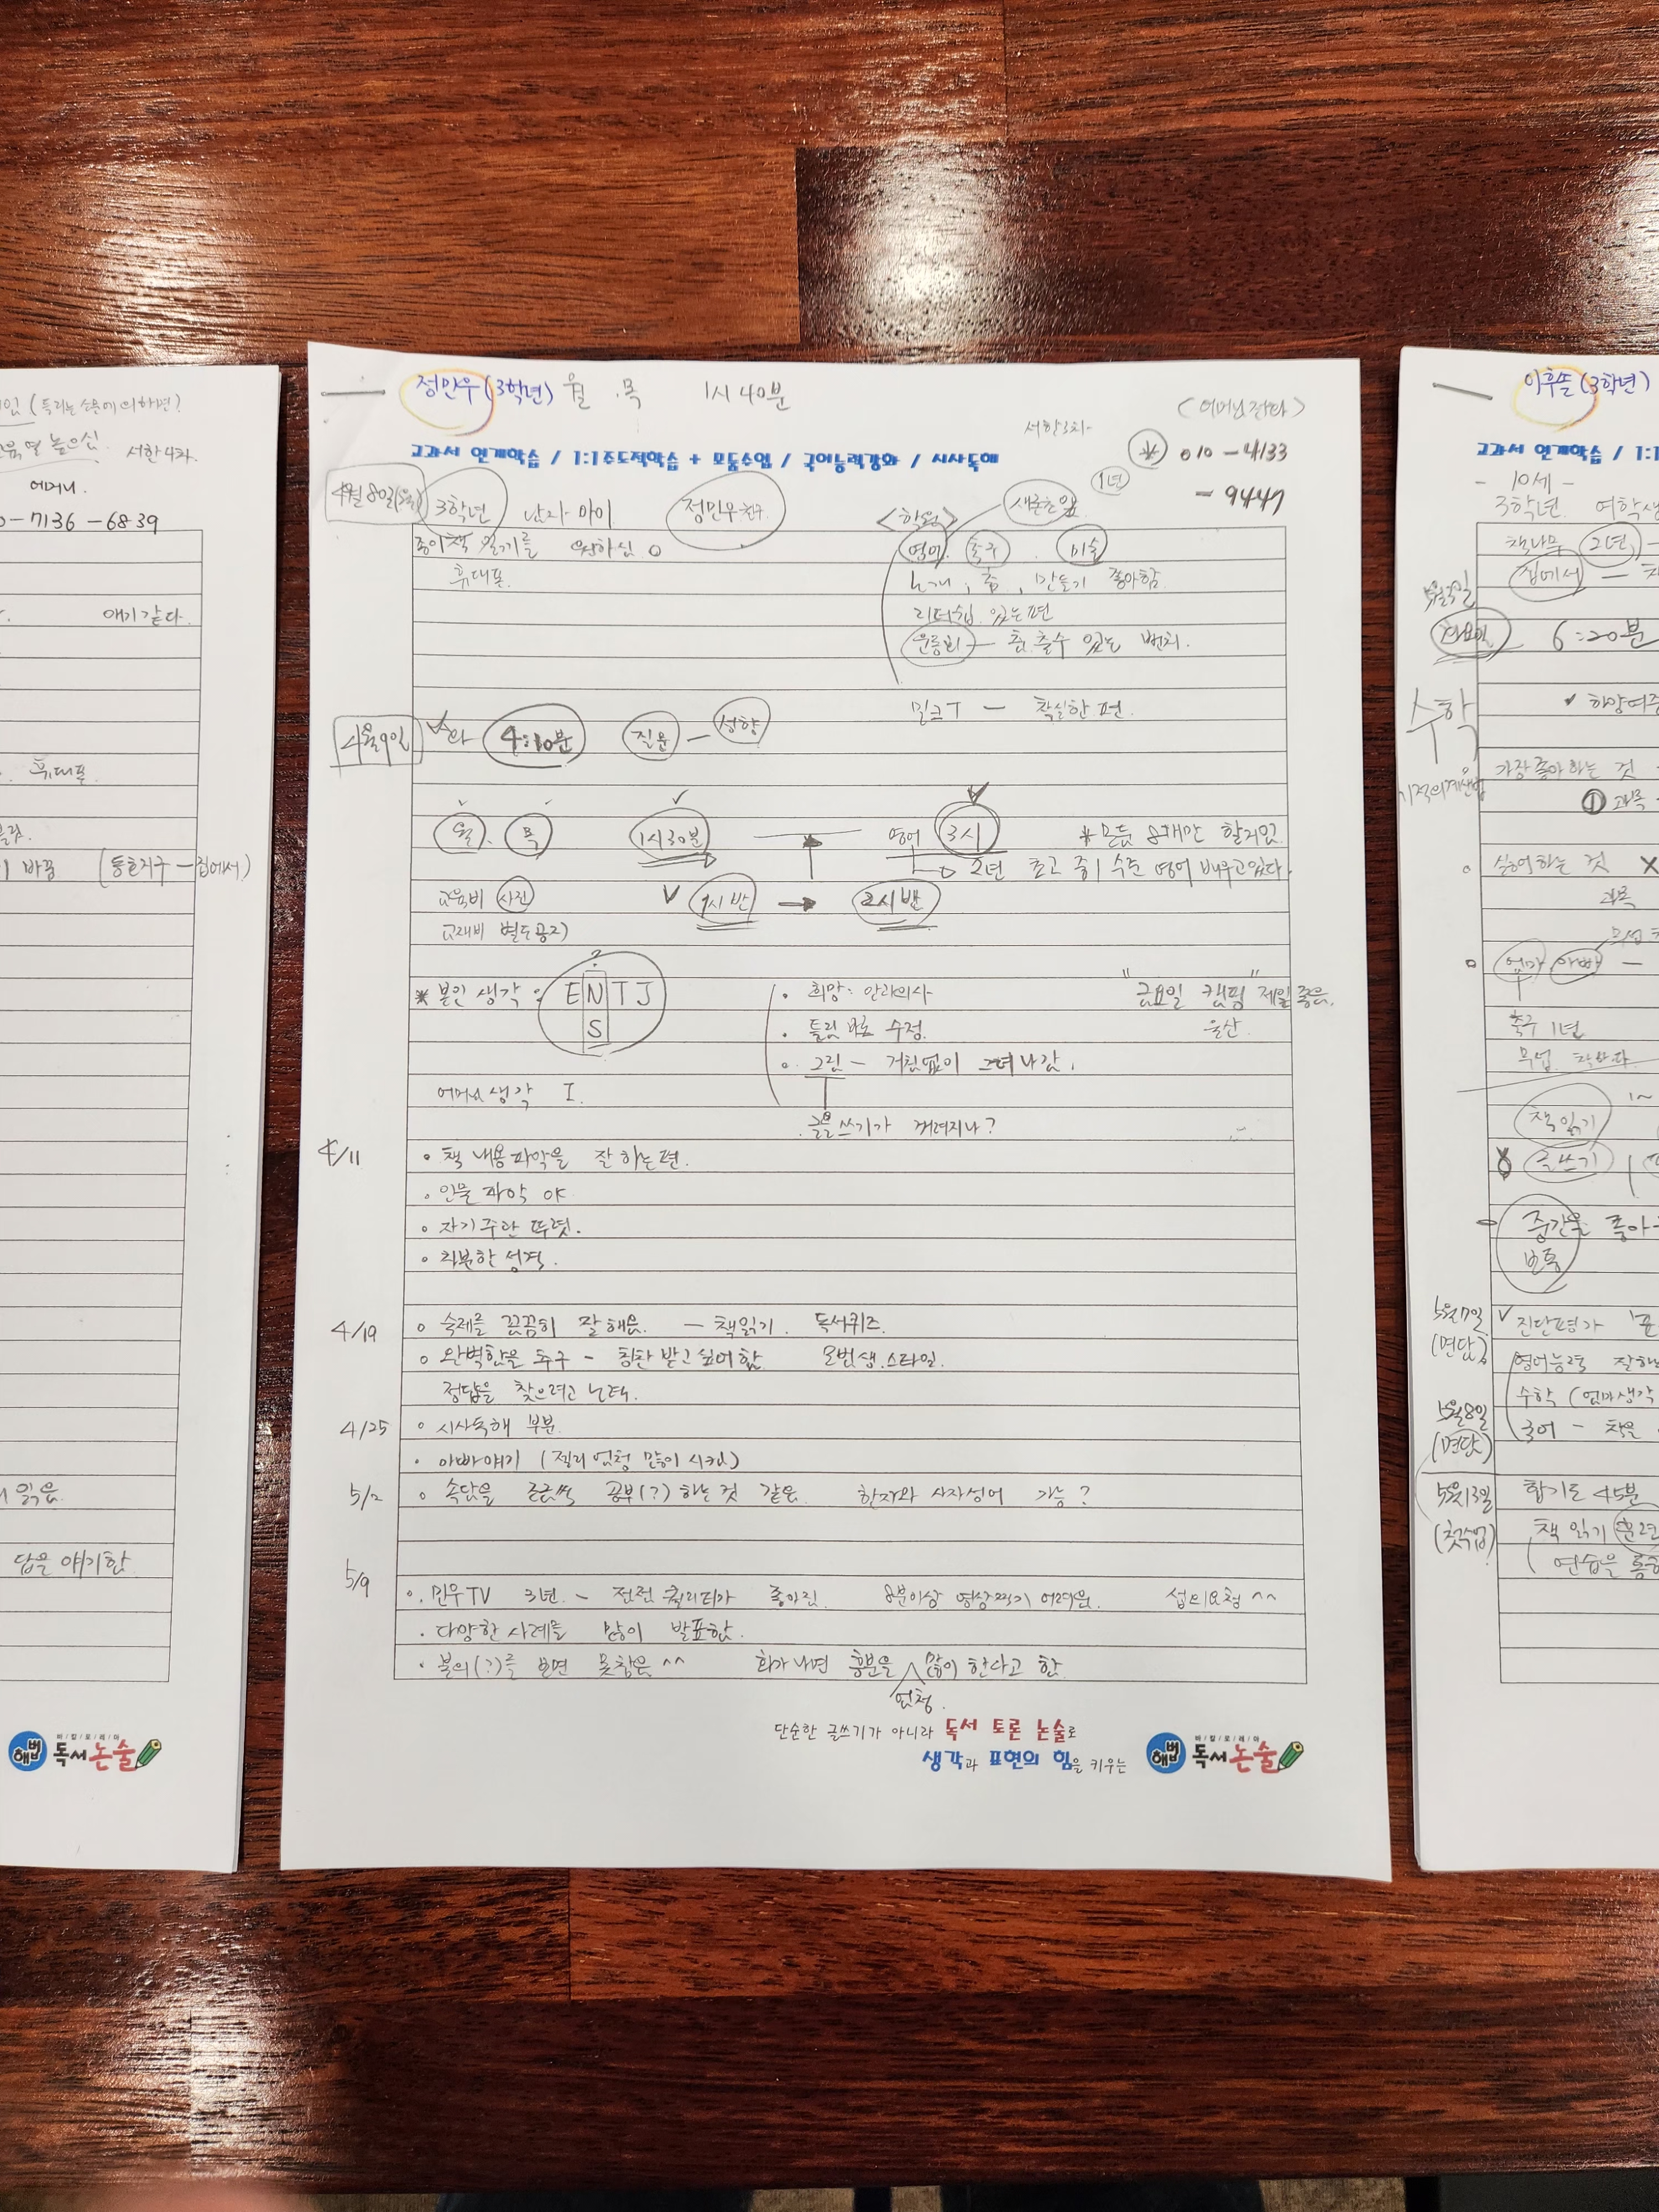 정민우 (3학년) 월 .목 1시 40분
(어머님 전화)
서한3차
교과서 연계학습 / 1:1주도적학습 + 모둠수업 / 국어능력강화 / 시사독해
010-4133
-9447
4월 8일(월) 3학년 남자아이 정민우친구
<학원> 새론초앞 1년
종이책 읽기를 원하심
영어. 축구. 미술
휴대폰.
노래, 춤, 만들기 좋아함
리더쉽 있는편
춤출수 있는 벤치.
밀크T — 착실한 편.
4월9일 4:10분 질문 — 성향
월. 목 1시30분 영어 3시
2년 초고 중1 수준 영어 배우고있다.
교육비 사진 1시반 → 2시반
교재비 별도공지
* 본인 생각 : E N T J
S
· 희망: 안과의사
"금요일 캠핑" 제일 좋음.
울산.
· 틀림 바로 수정.
· 그림 — 거침없이 그려나감.
어머님 생각 I.
글쓰기가 꺼려지나?
4/11 · 책 내용파악을 잘 하는편.
· 인물 파악
· 자기주관 뚜렷.
· 차분한 성격.
4/19 · 숙제를 꼼꼼히 잘해옴. — 책읽기. 독서퀴즈.
· 완벽함을 추구 — 칭찬 받고싶어함 모범생.스타일.
정답을 찾으려고 노력.
4/25 · 시사독해 부분.
· 아빠얘기 (젤리 엄청 많이 시킴)
5/2 · 속담을 조금씩 공부(?)하는것 같음. 한자와 사자성어 가능?
5/9 · 민우TV 3년. — 점점 퀄리티가 좋아짐. 8분이상 영상찍기 어려움. 섭외요청 ^^
· 다양한 사례를 많이 발표함.
· 불의(?)를 보면 못참음 ^^ 화가나면 흥분을 엄청 많이 한다고 함
단순한 글쓰기가 아니라 독서 토론 논술로
생각과 표현의 힘을 키우는
해법 바/칼/로/레/아 독서논술
서한4차.
어머니.
-7136-6839
얘기같다.
휴대폰
바꿈 (동호지구 — 집에서)
읽음.
답을 얘기함
해법 바/칼/로/레/아 독서논술
이후솔 (3학년)
교과서 연계학습 / 1:1
- 10세 -
3학년 여학생
책나무 2년,
집에서
화요일 6:20분
수학
기적의계산법
가장좋아하는 것
① 과목
싫어하는 것 X
과목
엄마 아빠 —
축구 1년
책읽기
글쓰기
중간을 좋아
보통
5월7일 (면담) 진단평가
영어능력 잘하
수학 (엄마생각
5월8일 (면담) 국어 —
5월13일 (첫수업) 합기도 45분
책 읽기 훈련
연습을 통해